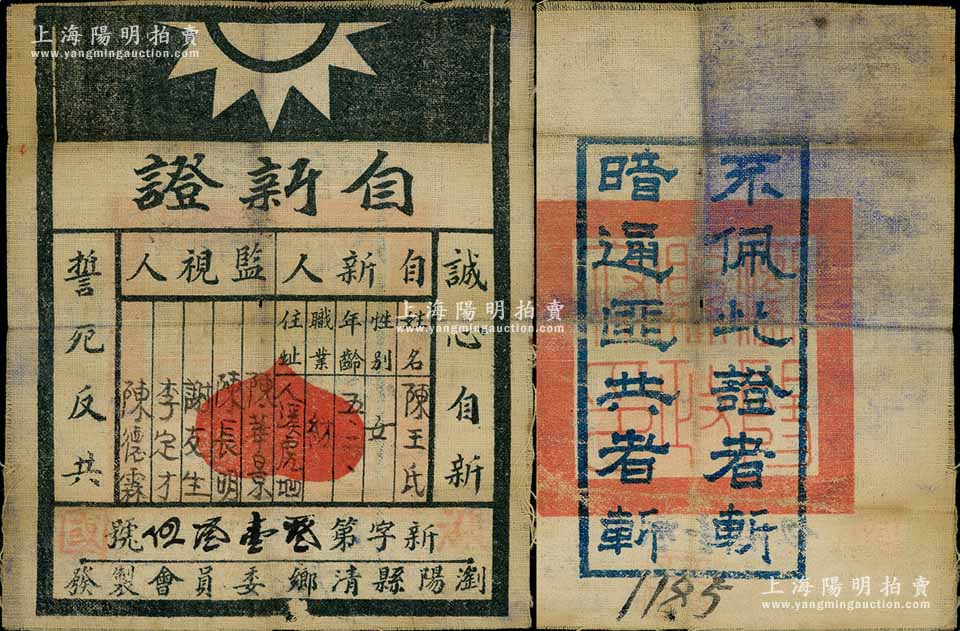 上海陽明拍賣
www.yangmingauction.com
自新證
誠心自新
自新人
監視人
姓名 陳王氏
性別 女
年齡 五二
職業 紡
住址 人溪虎地
陳華景
陳長明
謝友生
李定才
陳德霖
誓死反共
新字第 號
瀏陽縣清鄉委員會製發
上海陽明拍賣
www.yangmingauction.com
不佩此證者斬
暗通匪共者斬
1185
上海陽明拍賣
www.yangmingauction.com
上海陽明拍賣
www.yangmingauction.com